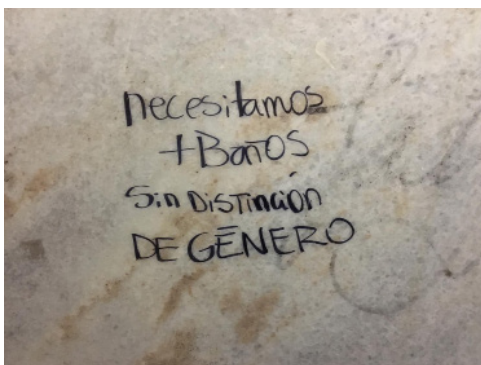 necesitamos
+Baños
Sin DISTinción
DE GÉNERO